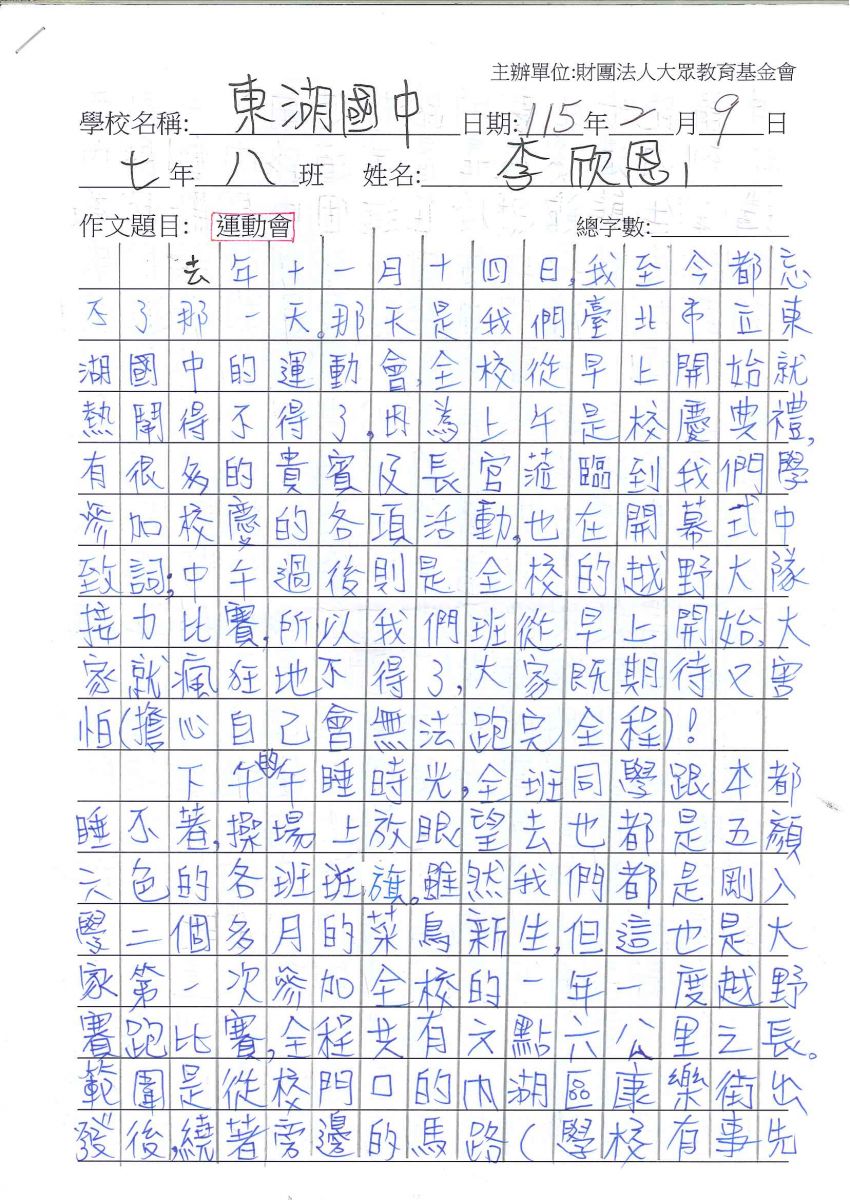 主辦單位:財團法人大眾教育基金會
學校名稱:東湖國中 日期:115年2月9日
七年八班 姓名:李欣恩
作文題目: 運動會 總字數:
去年十一月十四日,我至今都忘
不了那一天。那天是我們臺北市立東
湖國中的運動會,全校從早上開始就
熱鬧得不得了,因為上午是校慶典禮,
有很多的貴賓及長官蒞臨到我們學
參加校慶的各項活動,也在開幕式中
致詞;中午過後則是全校的越野大隊
接力比賽,所以我們班從早上開始,大
家就瘋狂地不得了,大家既期待又害
怕(擔心自己會無法跑完全程)!
下午的午睡時光,全班同學跟本都
睡不著,操場上放眼望去也都是五顏
六色的各班班旗。雖然我們都是剛入
學二個多月的菜鳥新生,但這也是大
家第一次參加全校的一年一度越野
賽跑比賽,全程共有六點六公里之長。
範圍是從校門口的內湖區康樂街出
發後,繞著旁邊的馬路(學校有事先